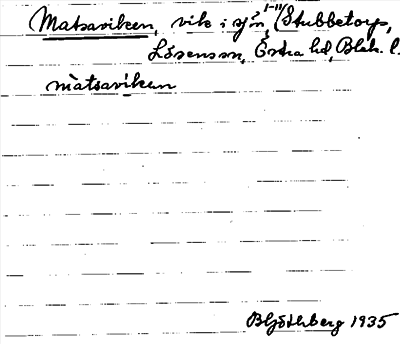 Matsaviken, vik i sjön (Stubbetorp,
Lösensson, Östra hd, Blek. l.
màtsavíken
Bhj Sthberg 1935